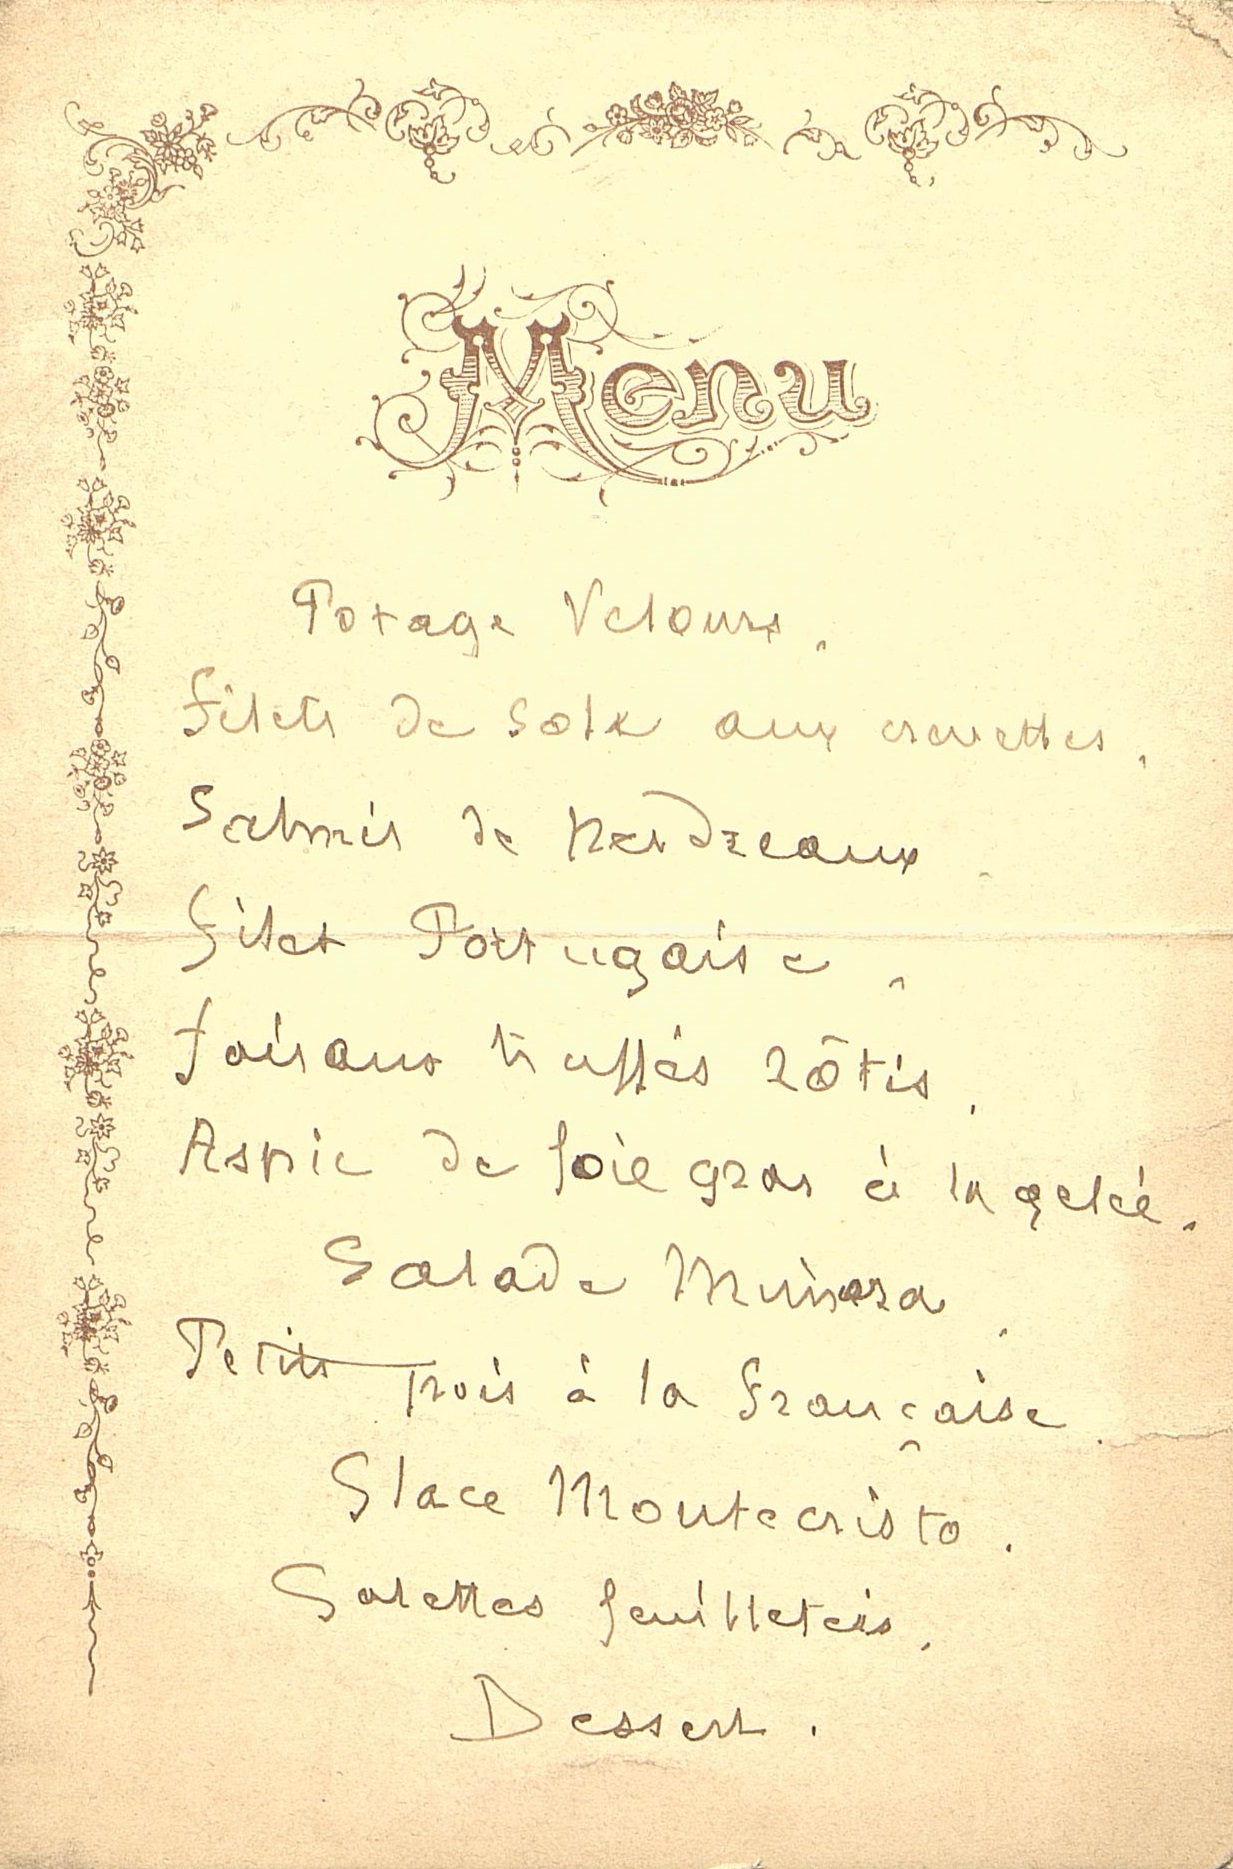 Menu
Potage Velours.
Filets de Sole aux crevettes.
Salmis de Perdreaux.
Filet Portugaise.
Faisans truffés rôtis.
Aspic de foie gras à la gelée.
Salade
Petits pois à la française.
Glace Montecristo.
Galettes feuilletés.
Dessert.